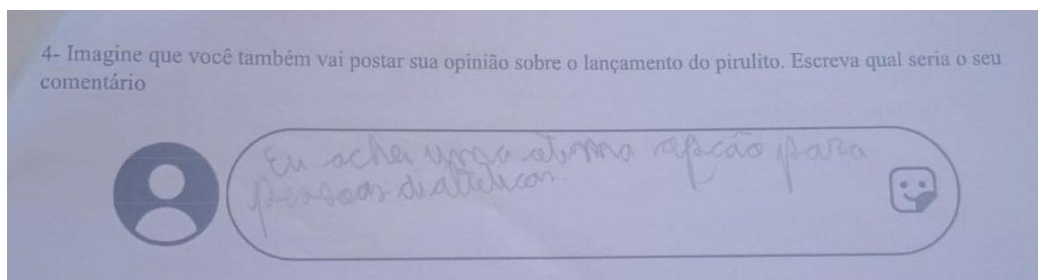 4- Imagine que você também vai postar sua opinião sobre o lançamento do pirulito. Escreva qual seria o seu
comentário
Eu achei uma otima opção para
pessoas diabeticas.